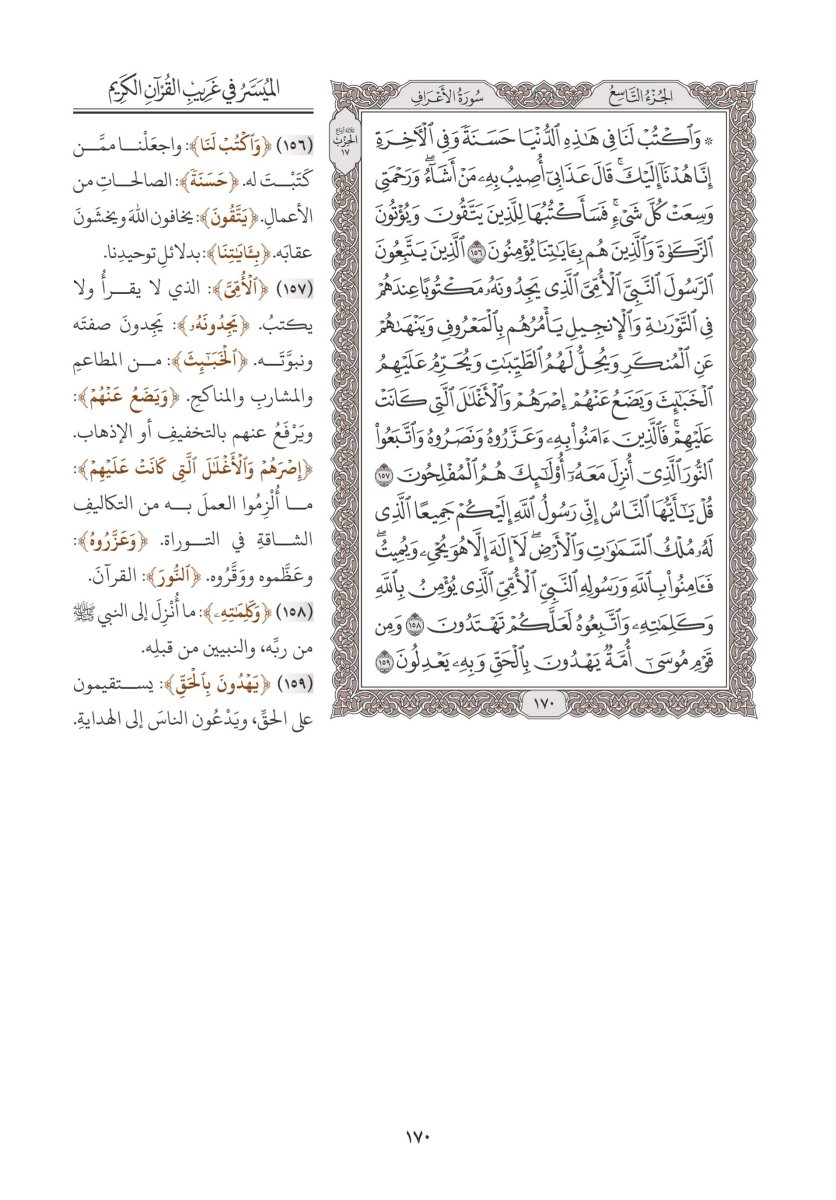 الجُزْءُ التَّاسِعُ
سُورَةُ الأَعْرَافِ
الحِزْبُ
١٧
۞ وَٱكۡتُبۡ لَنَا فِي هَٰذِهِ ٱلدُّنۡيَا حَسَنَةٗ وَفِي ٱلۡأٓخِرَةِ
إِنَّا هُدۡنَآ إِلَيۡكَۚ قَالَ عَذَابِيٓ أُصِيبُ بِهِۦ مَنۡ أَشَآءُۖ وَرَحۡمَتِي
وَسِعَتۡ كُلَّ شَيۡءٖۚ فَسَأَكۡتُبُهَا لِلَّذِينَ يَتَّقُونَ وَيُؤۡتُونَ
ٱلزَّكَوٰةَ وَٱلَّذِينَ هُم بِـَٔايَٰتِنَا يُؤۡمِنُونَ ١٥٦ ٱلَّذِينَ يَتَّبِعُونَ
ٱلرَّسُولَ ٱلنَّبِيَّ ٱلۡأُمِّيَّ ٱلَّذِي يَجِدُونَهُۥ مَكۡتُوبًا عِندَهُمۡ
فِي ٱلتَّوۡرَىٰةِ وَٱلۡإِنجِيلِ يَأۡمُرُهُم بِٱلۡمَعۡرُوفِ وَيَنۡهَىٰهُمۡ
عَنِ ٱلۡمُنكَرِ وَيُحِلُّ لَهُمُ ٱلطَّيِّبَٰتِ وَيُحَرِّمُ عَلَيۡهِمُ
ٱلۡخَبَٰٓئِثَ وَيَضَعُ عَنۡهُمۡ إِصۡرَهُمۡ وَٱلۡأَغۡلَٰلَ ٱلَّتِي كَانَتۡ
عَلَيۡهِمۡۚ فَٱلَّذِينَ ءَامَنُواْ بِهِۦ وَعَزَّرُوهُ وَنَصَرُوهُ وَٱتَّبَعُواْ
ٱلنُّورَ ٱلَّذِيٓ أُنزِلَ مَعَهُۥٓ أُوْلَٰٓئِكَ هُمُ ٱلۡمُفۡلِحُونَ ١٥٧
قُلۡ يَٰٓأَيُّهَا ٱلنَّاسُ إِنِّي رَسُولُ ٱللَّهِ إِلَيۡكُمۡ جَمِيعًا ٱلَّذِي
لَهُۥ مُلۡكُ ٱلسَّمَٰوَٰتِ وَٱلۡأَرۡضِۖ لَآ إِلَٰهَ إِلَّا هُوَ يُحۡيِۦ وَيُمِيتُۖ
فَـَٔامِنُواْ بِٱللَّهِ وَرَسُولِهِ ٱلنَّبِيِّ ٱلۡأُمِّيِّ ٱلَّذِي يُؤۡمِنُ بِٱللَّهِ
وَكَلِمَٰتِهِۦ وَٱتَّبِعُوهُ لَعَلَّكُمۡ تَهۡتَدُونَ ١٥٨ وَمِن
قَوۡمِ مُوسَىٰٓ أُمَّةٞ يَهۡدُونَ بِٱلۡحَقِّ وَبِهِۦ يَعۡدِلُونَ ١٥٩
١٧٠
المُيَسَّرُ في غَرِيبِ القُرْآنِ الكَرِيمِ
(١٥٦) ﴿وَٱكۡتُبۡ لَنَا﴾: واجعَلْنا ممَّن
كَتَبْتَ له. ﴿حَسَنَةٗ﴾: الصالحاتِ من
الأعمالِ. ﴿يَتَّقُونَ﴾: يخافون اللهَ ويخشَونَ
عقابَه. ﴿بِـَٔايَٰتِنَا﴾: بدلائلِ توحيدِنا.
(١٥٧) ﴿ٱلۡأُمِّيَّ﴾: الذي لا يقرأُ ولا
يكتبُ. ﴿يَجِدُونَهُۥ﴾: يَجِدونَ صفتَه
ونبوَّتَه. ﴿ٱلۡخَبَٰٓئِثَ﴾: من المطاعمِ
والمشاربِ والمناكحِ. ﴿وَيَضَعُ عَنۡهُمۡ﴾:
ويَرْفَعُ عنهم بالتخفيفِ أو الإذهابِ.
﴿إِصۡرَهُمۡ وَٱلۡأَغۡلَٰلَ ٱلَّتِي كَانَتۡ عَلَيۡهِمۡ﴾:
ما أُلْزِمُوا العملَ به من التكاليفِ
الشاقةِ في التوراة. ﴿وَعَزَّرُوهُ﴾:
وعَظَّموه ووَقَّرُوه. ﴿ٱلنُّورَ﴾: القرآنَ.
(١٥٨) ﴿وَكَلِمَٰتِهِۦ﴾: ما أُنْزِلَ إلى النبي ﷺ
من ربِّه، والنبيين من قبلِه.
(١٥٩) ﴿يَهۡدُونَ بِٱلۡحَقِّ﴾: يستقيمون
على الحقِّ، ويَدْعُون الناسَ إلى الهدايةِ.
١٧٠